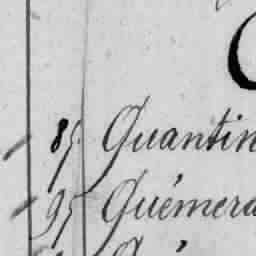 85 Quantin
95 Quémera